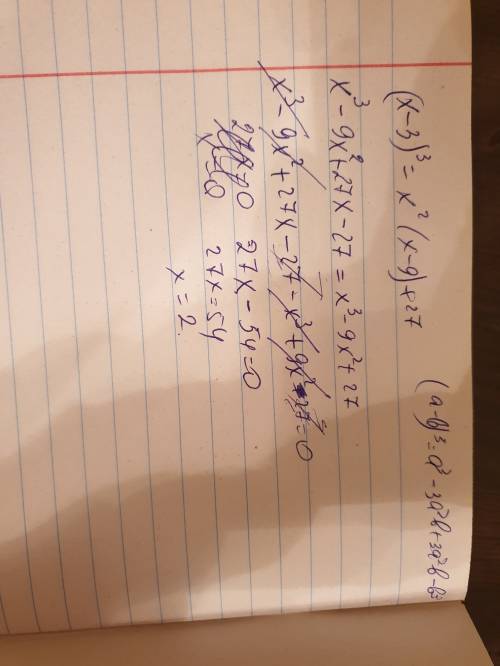 (x-3)³ = x²(x-9)+27
(a-b)³ = a³ - 3a²b + 3a²b - b³
x³ - 9x² + 27x - 27 = x³ - 9x² + 27
x³ - 9x² + 27x - 27 - x³ + 9x² - 27 = 0
27x - 54 = 0
x = 0
27x = 54
x = 2.